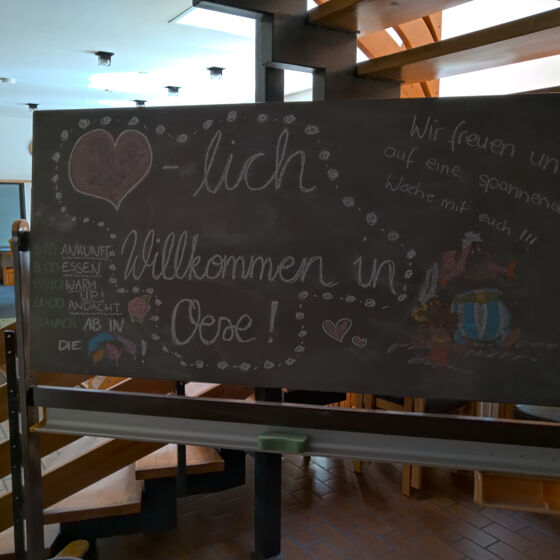 -lich
Willkommen in
Oese!
Wir freuen un
auf eine spannend
Woche mit euch!!!
ANKUNFT
ESSEN
WARM
UP!
ANDACHT
DANACH AB IN
DIE !